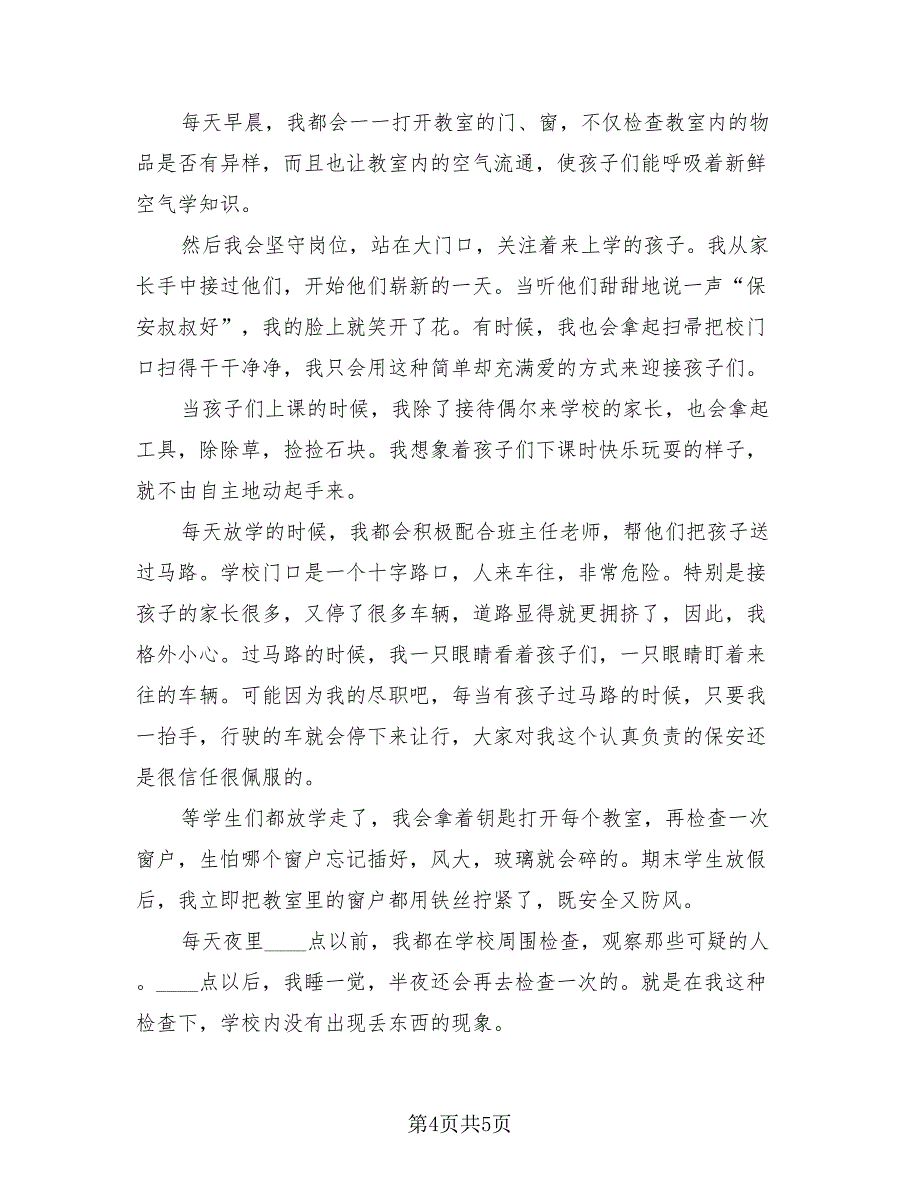 每天早晨，我都会一一打开教室的门、窗，不仅检查教室内的物
品是否有异样，而且也让教室内的空气流通，使孩子们能呼吸着新鲜
空气学知识。
然后我会坚守岗位，站在大门口，关注着来上学的孩子。我从家
长手中接过他们，开始他们崭新的一天。当听他们甜甜地说一声“保
安叔叔好”，我的脸上就笑开了花。有时候，我也会拿起扫帚把校门
口扫得干干净净，我只会用这种简单却充满爱的方式来迎接孩子们。
当孩子们上课的时候，我除了接待偶尔来学校的家长，也会拿起
工具，除除草，捡捡石块。我想象着孩子们下课时快乐玩耍的样子，
就不由自主地动起手来。
每天放学的时候，我都会积极配合班主任老师，帮他们把孩子送
过马路。学校门口是一个十字路口，人来车往，非常危险。特别是接
孩子的家长很多，又停了很多车辆，道路显得就更拥挤了，因此，我
格外小心。过马路的时候，我一只眼睛看着孩子们，一只眼睛盯着来
往的车辆。可能因为我的尽职吧，每当有孩子过马路的时候，只要我
一抬手，行驶的车就会停下来让行，大家对我这个认真负责的保安还
是很信任很佩服的。
等学生们都放学走了，我会拿着钥匙打开每个教室，再检查一次
窗户，生怕哪个窗户忘记插好，风大，玻璃就会碎的。期末学生放假
后，我立即把教室里的窗户都用铁丝拧紧了，既安全又防风。
每天夜里____点以前，我都在学校周围检查，观察那些可疑的人
。____点以后，我睡一觉，半夜还会再去检查一次的。就是在我这种
检查下，学校内没有出现丢东西的现象。
第4页共5页